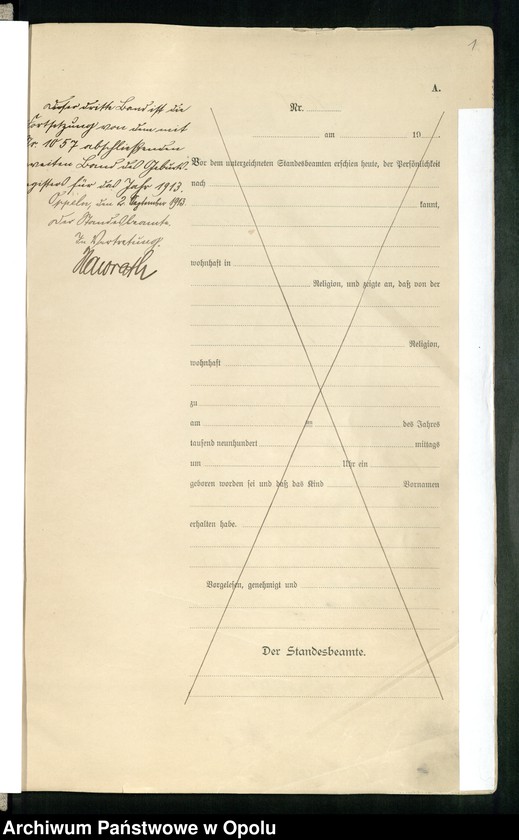 1.
A.
Dieser dritte Band ist die
Fortsetzung von dem mit
Nr. 1057 abschließenden
zweiten Band des Geburts-
registers für das Jahr 1913.
Oppeln, den 2. September 1913.
Der Standesbeamte.
In Vertretung.
Nr.
am 19
Vor dem unterzeichneten Standesbeamten erschien heute, der Persönlichkeit
nach
kannt,
wohnhaft in
Religion, und zeigte an, daß von der
Religion,
wohnhaft
zu
am des Jahres
tausend neunhundert mittags
um Uhr ein
geboren worden sei und daß das Kind Vornamen
erhalten habe.
Vorgelesen, genehmigt und
Der Standesbeamte.
Archiwum Państwowe w Opolu